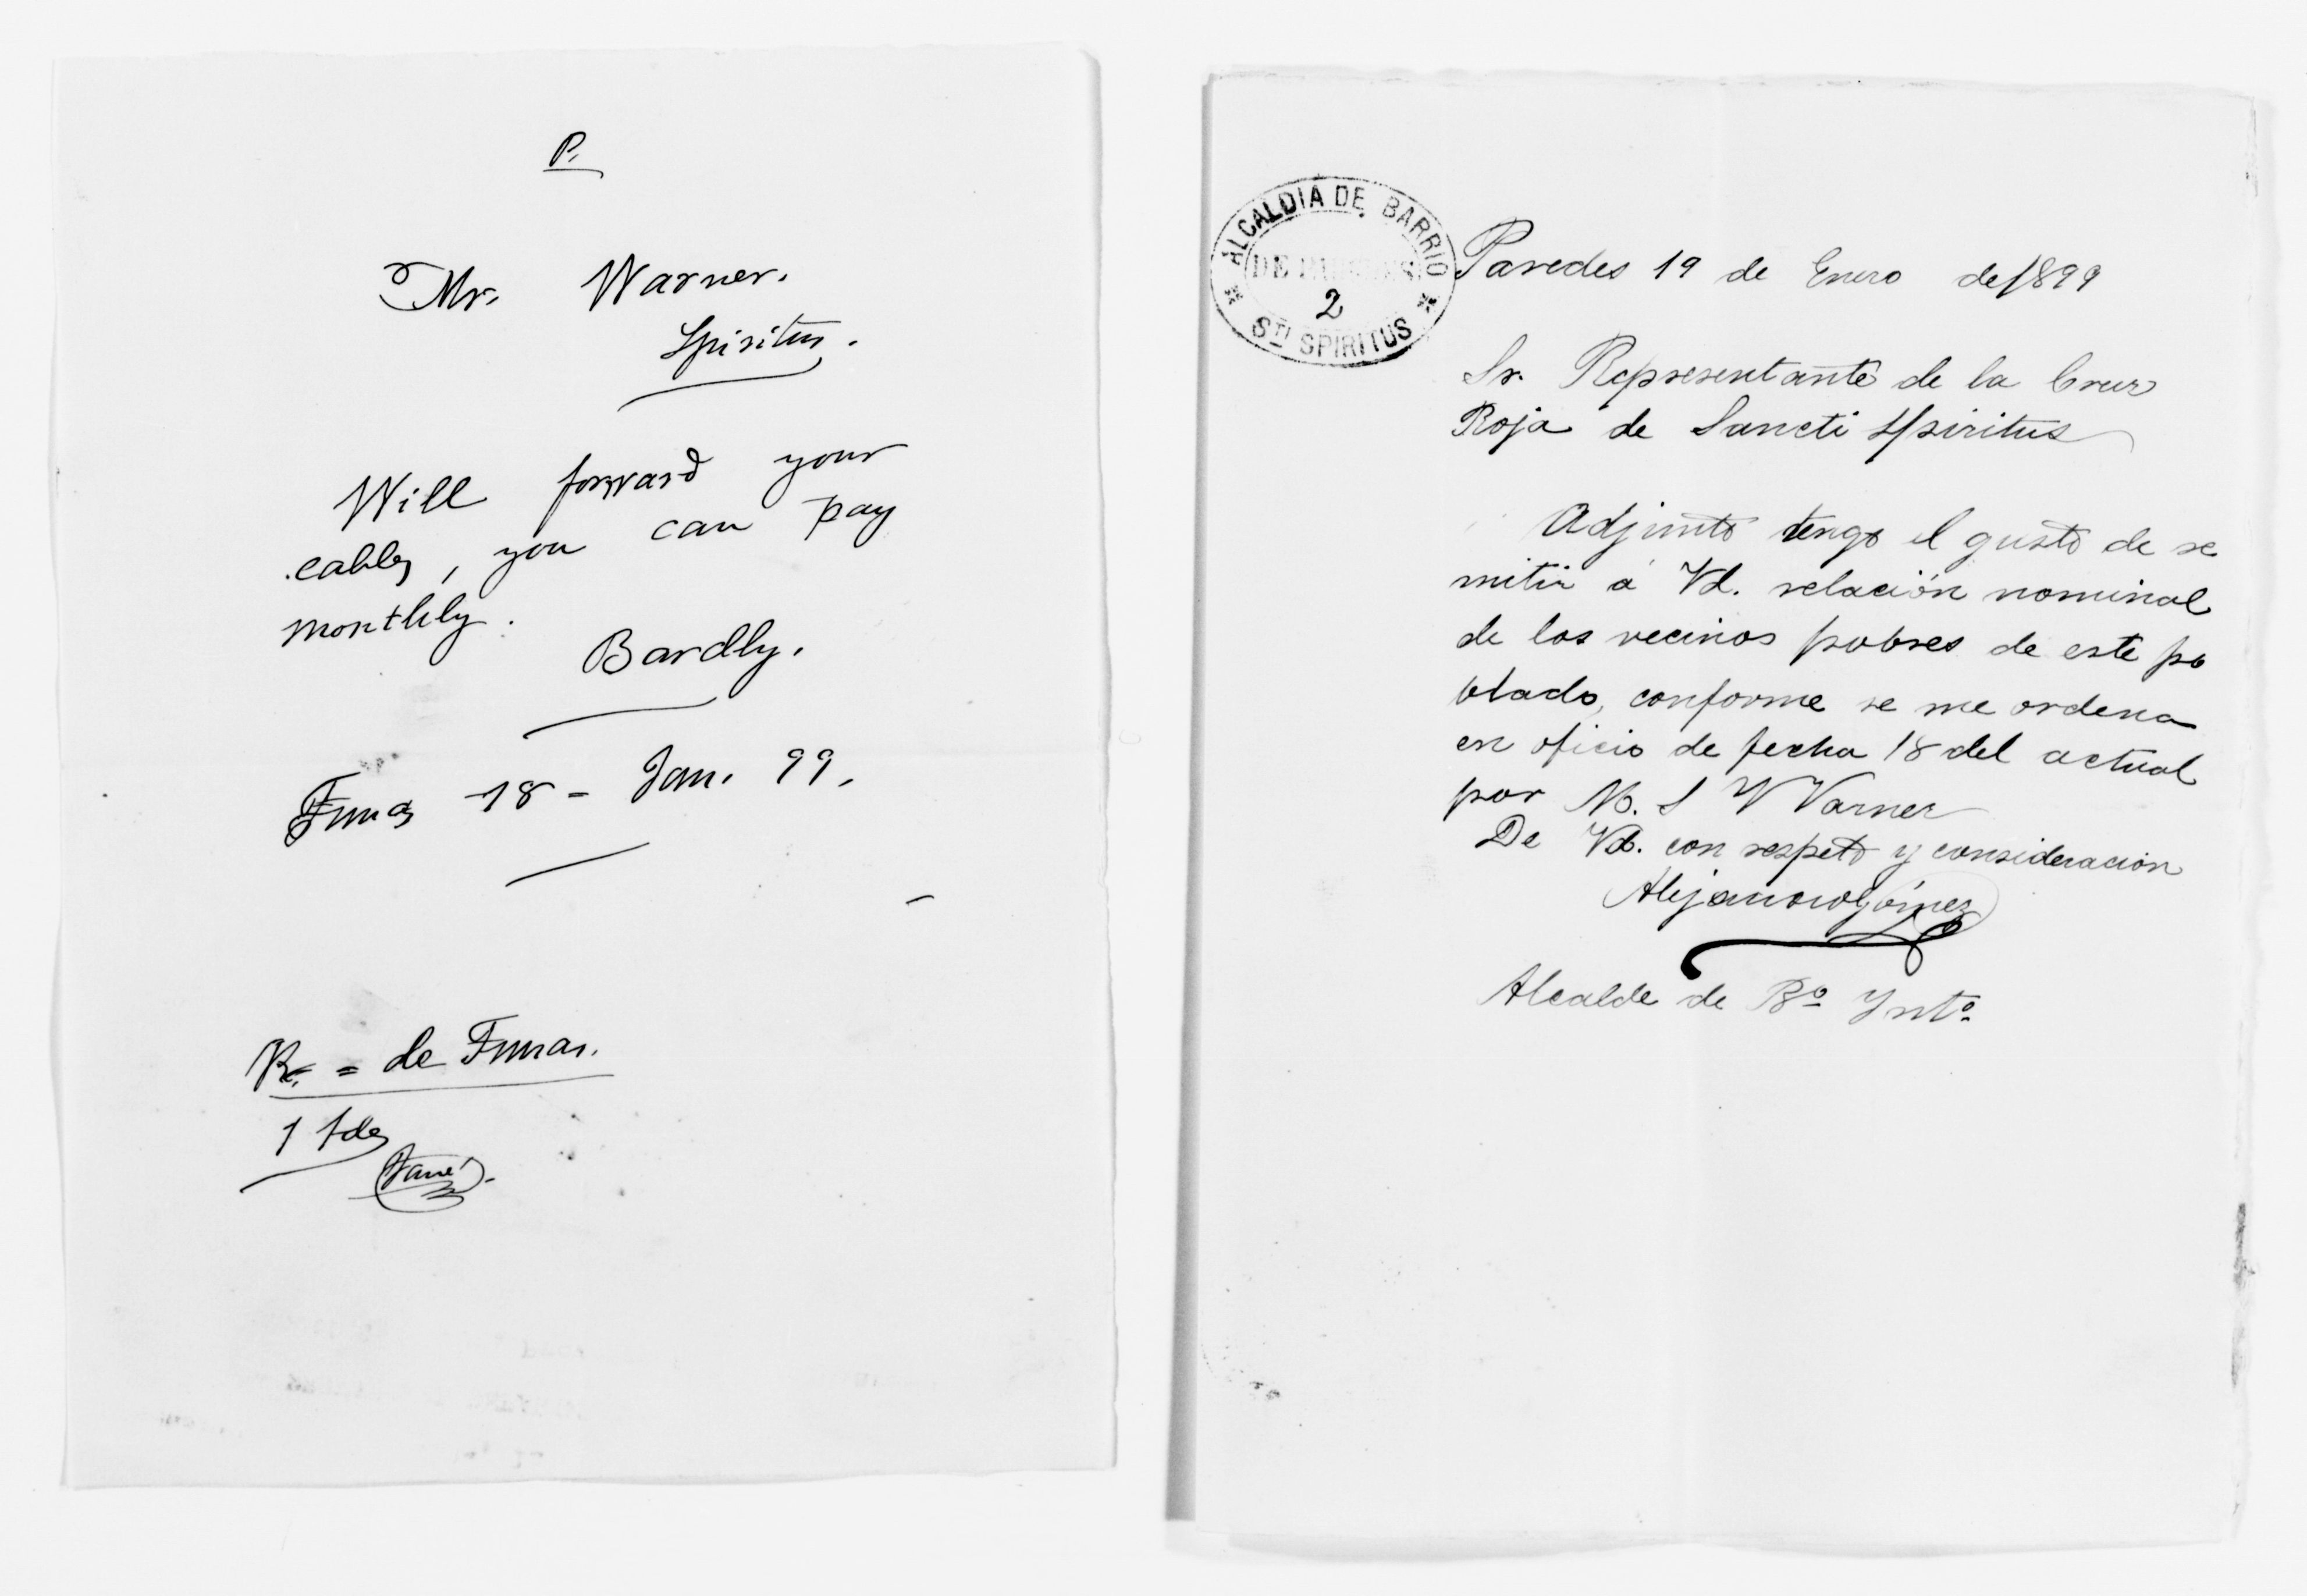 P.
Mr. Warner.
Spiritus.
Will forward your
cables, you can pay
monthly.
Bardlly.
Tunas 18 = Jan. 99.
R. = de Tunas.
1 tde
ALCALDIA DE BARRIO
DE
2
STI SPIRITUS
Paredes 19 de Enero de 1899
Sr. Representante de la Cruz
Roja de Sancti Spiritus
Adjunto tengo el gusto de re
mitir á Vd. relación nominal
de los vecinos pobres de este po
blado, conforme se me ordena
en oficio de fecha 18 del actual
por M. S W Warner
De Vd. con respeto y consideración
Alejandro Gómez
Alcalde de Bº Yntº